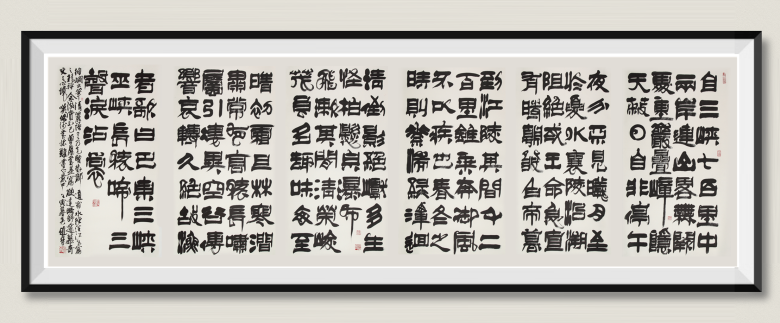 自三峽七百里中
兩岸連山略無闕
處重巖疊嶂隱
天蔽日自非停午
夜分不見曦月至
於夏水襄陵沿溯
阻絕或王命急宣
有時朝發白帝暮
到江陵其間千二
百里雖乘奔御風
不以疾也春冬之
時則素湍綠潭迴
清倒影絕巘多生
怪柏懸泉瀑布
飛漱其間清榮峻
茂良多趣味每至
晴初霜旦林寒澗
肅常有高猿長嘯
屬引淒異空谷傳
響哀轉久絕故漁
者歌曰巴東三峽
巫峽長猿啼三
聲淚沾裳